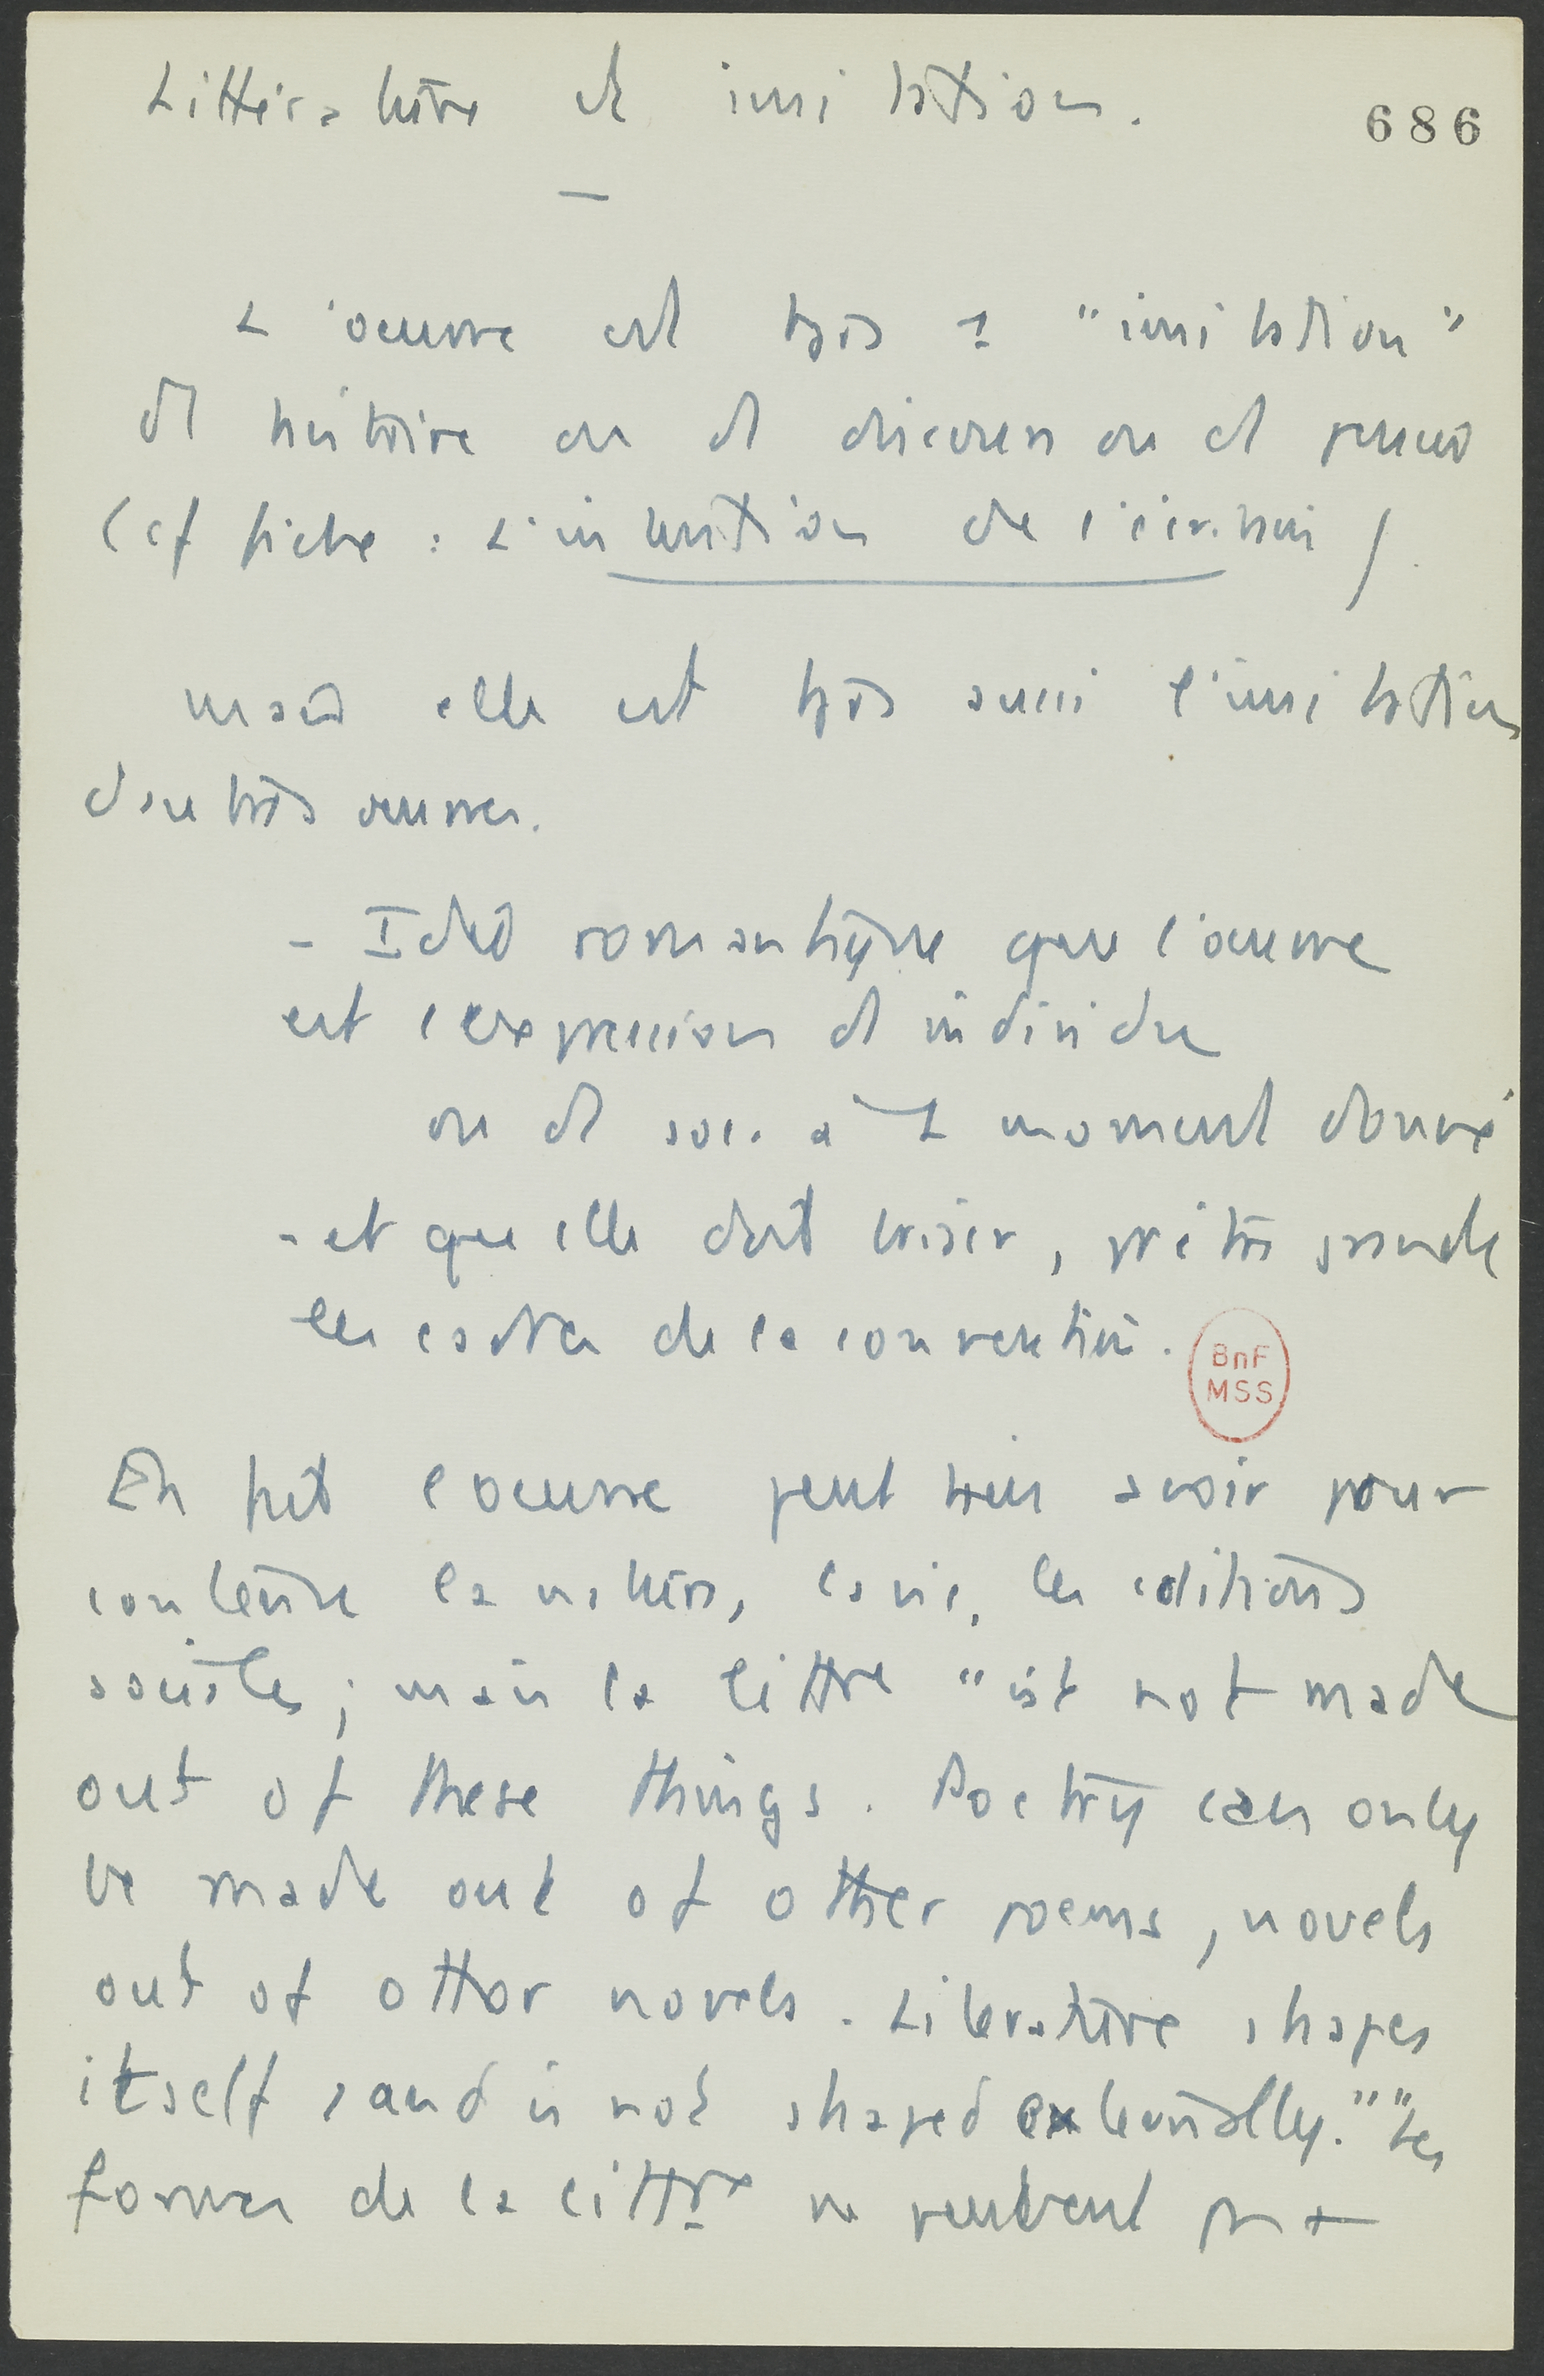 Littérature et imitation.
686
L'oeuvre est tjrs 1 "imitation"
d1 histoire ou d1 discours ou d1 pensée
(cf fiche : L'intention de l'écrivain).
mais elle est tjrs aussi l'imitation
d'autres oeuvres.
- Idée romantique que l'oeuvre
est l'expression d1 individu
ou d1 soc. à 1 moment donné
- et que elle doit briser, prétre
les cadres de la convention.
BnF
MSS
En fait l'oeuvre peut bien avoir pour
contenu la nature, la vie, les cditions
sociales ; mais la littre "is not made
out of these things. Poetry can only
be made out of other poems, novels
out of other novels. Literature shapes
itself, and is not shaped externally." "Les
formes de la littre ne peuvent pas +